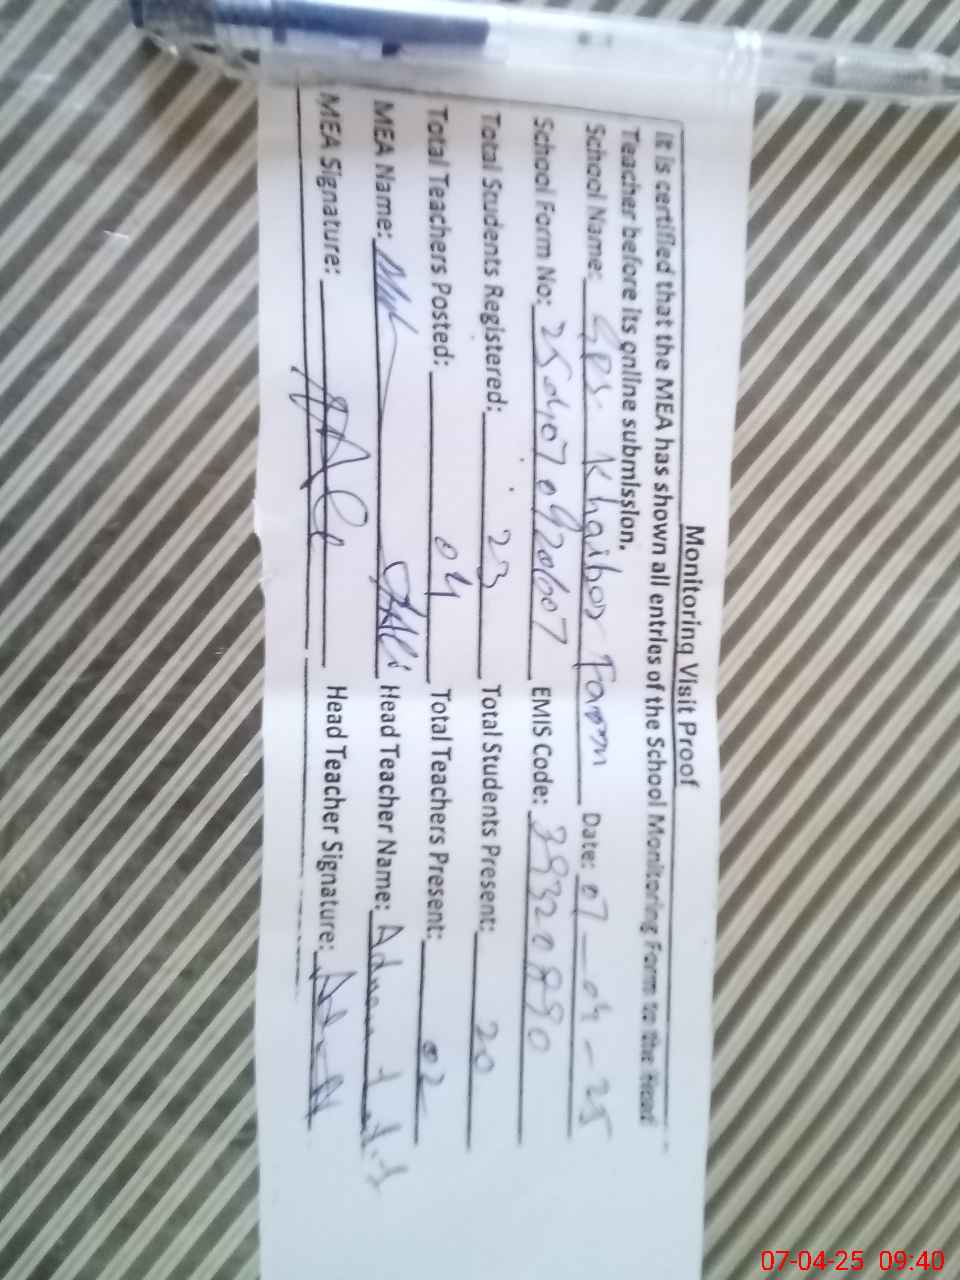 Monitoring Visit Proof
It is certified that the MEA has shown all entries of the School Monitoring Form to the Head
Teacher before its online submission.
School Name: GPS. Khaibor Farm Date: 07-04-25
School Form No: EMIS Code:
Total Students Registered: 23 Total Students Present: 20
Total Teachers Posted: 04 Total Teachers Present: 02
MEA Name: Ali Head Teacher Name: Adnan
MEA Signature: Head Teacher Signature:
07-04-25 09:40